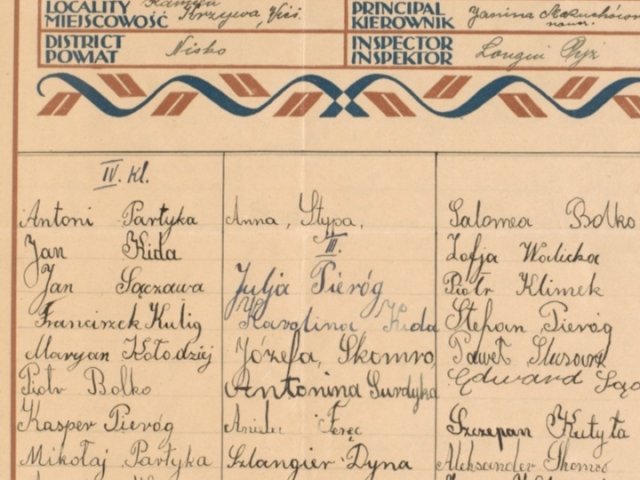 LOCALITY
MIEJSCOWOŚĆ
PRINCIPAL
KIEROWNIK Janina
DISTRICT
POWIAT Nisko
INSPECTOR
INSPEKTOR Longin
IV. kl.
Antoni Partyka
Jan Kida
Jan Sączawa
Franciszek Kulig
Maryan Kołodziej
Piotr Bolko
Kasper Pieróg
Mikołaj Partyka
Anna, Stypa,
III.
Julja Pieróg
Karolina Kida
Józefa, Skomro,
Antonina Surdyka
Aniela Feręc
Szlangier Dyna
Salomea Bolko
Zofja Walicka
Piotr Klimek
Stefan Pieróg
Paweł
Edward
Szczepan Kutyła
Aleksander Skomro